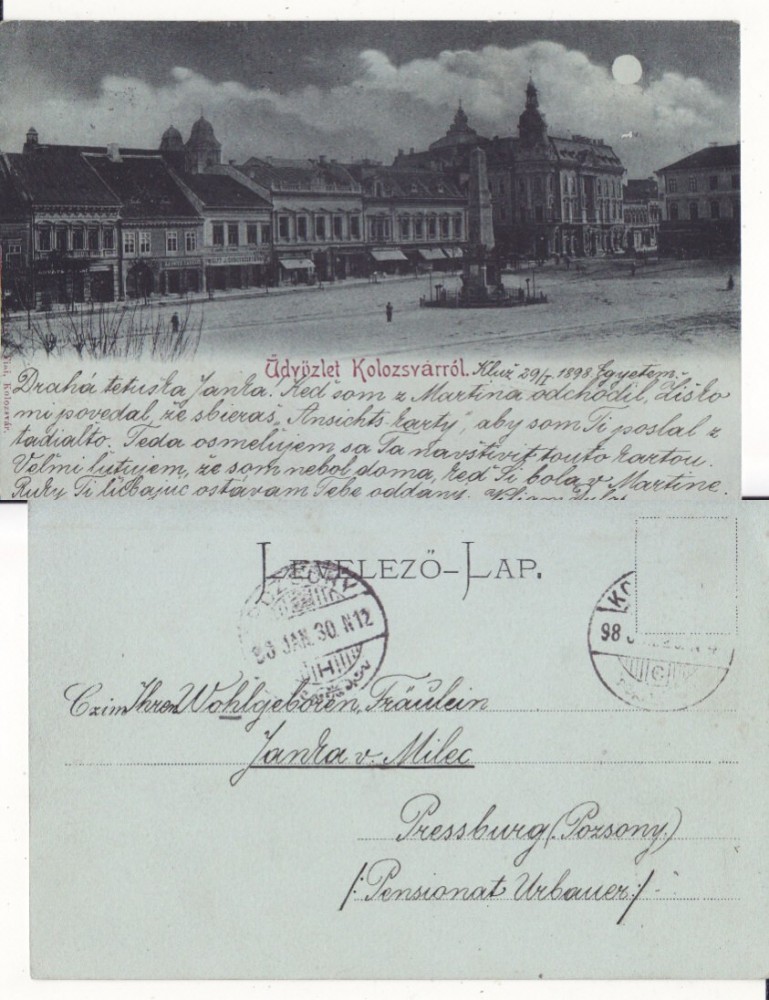 Üdvözlet Kolozsvárról. Kluž 29/I 1898 Egyetem.
Drahá tetuška Janka. Keď som z Martina odchodil, Žiško
mi povedal, že sbieraš „Ansichts-karty", aby som Ti poslal z
tadialto. Teda osmelujem sa Ta navštíviť touto kartou.
Veľmi lutujem, že som nebol doma, keď Si bola v Martine.
Ruky Ti líčbajúc ostávam Tebe oddaný
Kolozsvár.
LEVELEZŐ-LAP.
POZSONY
98 JAN. 30. N12
H
KO
98
C
Czim Ihrer Wohlgeboren, Fräulein
Janka v. Milec
Pressburg (Pozsony.)
/: Pensionat Urbauer :/